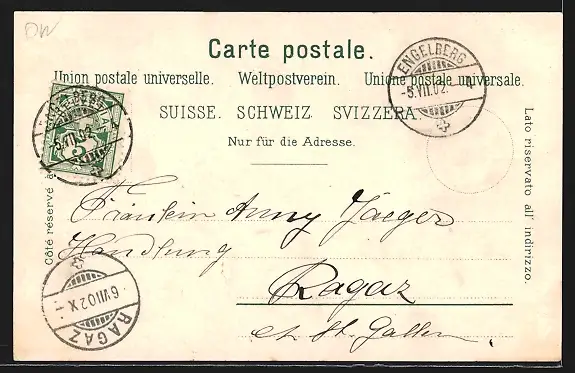 OW
Carte postale.
Union postale universelle. Weltpostverein. Unione postale universale.
SUISSE. SCHWEIZ. SVIZZERA.
Nur für die Adresse.
Côté réservé à
Lato riservato all' indirizzo.
ENGELBERG
-5.VII.02.
ENGELBERG
-5.VII.02.
5
Fräulein Anny Jaeger
Handlung
Ragaz
Ct. St. Gallen
6.VII.02.X
RAGAZ